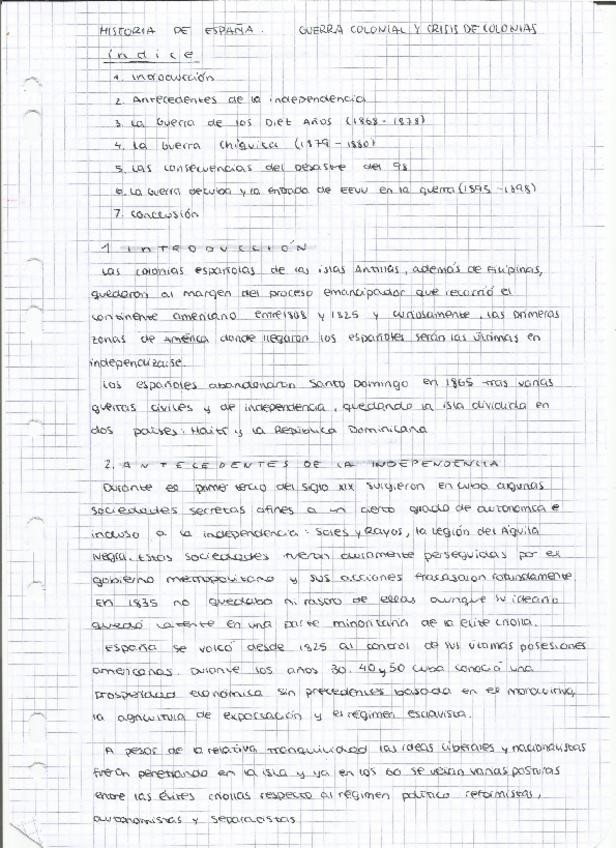 HISTORIA DE ESPAÑA. GUERRA COLONIAL Y CRISIS DE COLONIAS
índice
1. Introducción
2. Antecedentes de la independencia
3. La Guerra de los Diez Años (1868-1878)
4. La Guerra Chiquita (1879-1880)
5. Las consecuencias del desastre del 98
6. La Guerra de Cuba y la entrada de EEUU en la guerra (1895-1898)
7. Conclusión
1 INTRODUCCIÓN
Las colonias españolas de las islas Antillas, además de Filipinas,
quedaron al margen del proceso emancipador que recorrió el
continente americano entre 1808 y 1825 y curiosamente, las primeras
zonas de América donde llegaron los españoles serán las últimas en
independizarse.
Los españoles abandonaron Santo Domingo en 1865 tras varias
guerras civiles y de independencia, quedando la isla dividida en
dos países: Haití y la República Dominicana
2. ANTECEDENTES DE LA INDEPENDENCIA
Durante el primer tercio del siglo XIX surgieron en Cuba algunas
sociedades secretas afines a un cierto grado de autonomía e
incluso a la independencia: Soles y Rayos, la legión del Águila
Negra. Estas sociedades fueron duramente perseguidas por el
gobierno metropolitano y sus acciones fracasaron rotundamente.
En 1835 no quedaba ni rastro de ellas aunque su ideario
quedó latente en una parte minoritaria de la élite criolla.
España se volcó desde 1825 al control de sus últimas posesiones
americanas. Durante los años 30, 40 y 50 Cuba conoció una
prosperidad económica sin precedentes basada en el monocultivo,
la agricultura de exportación y el régimen esclavista.
A pesar de la relativa tranquilidad las ideas liberales y nacionalistas
fueron penetrando en la isla y ya en los 60 se veían varias posturas
entre las élites criollas respecto al régimen político reformistas,
autonomistas y separatistas